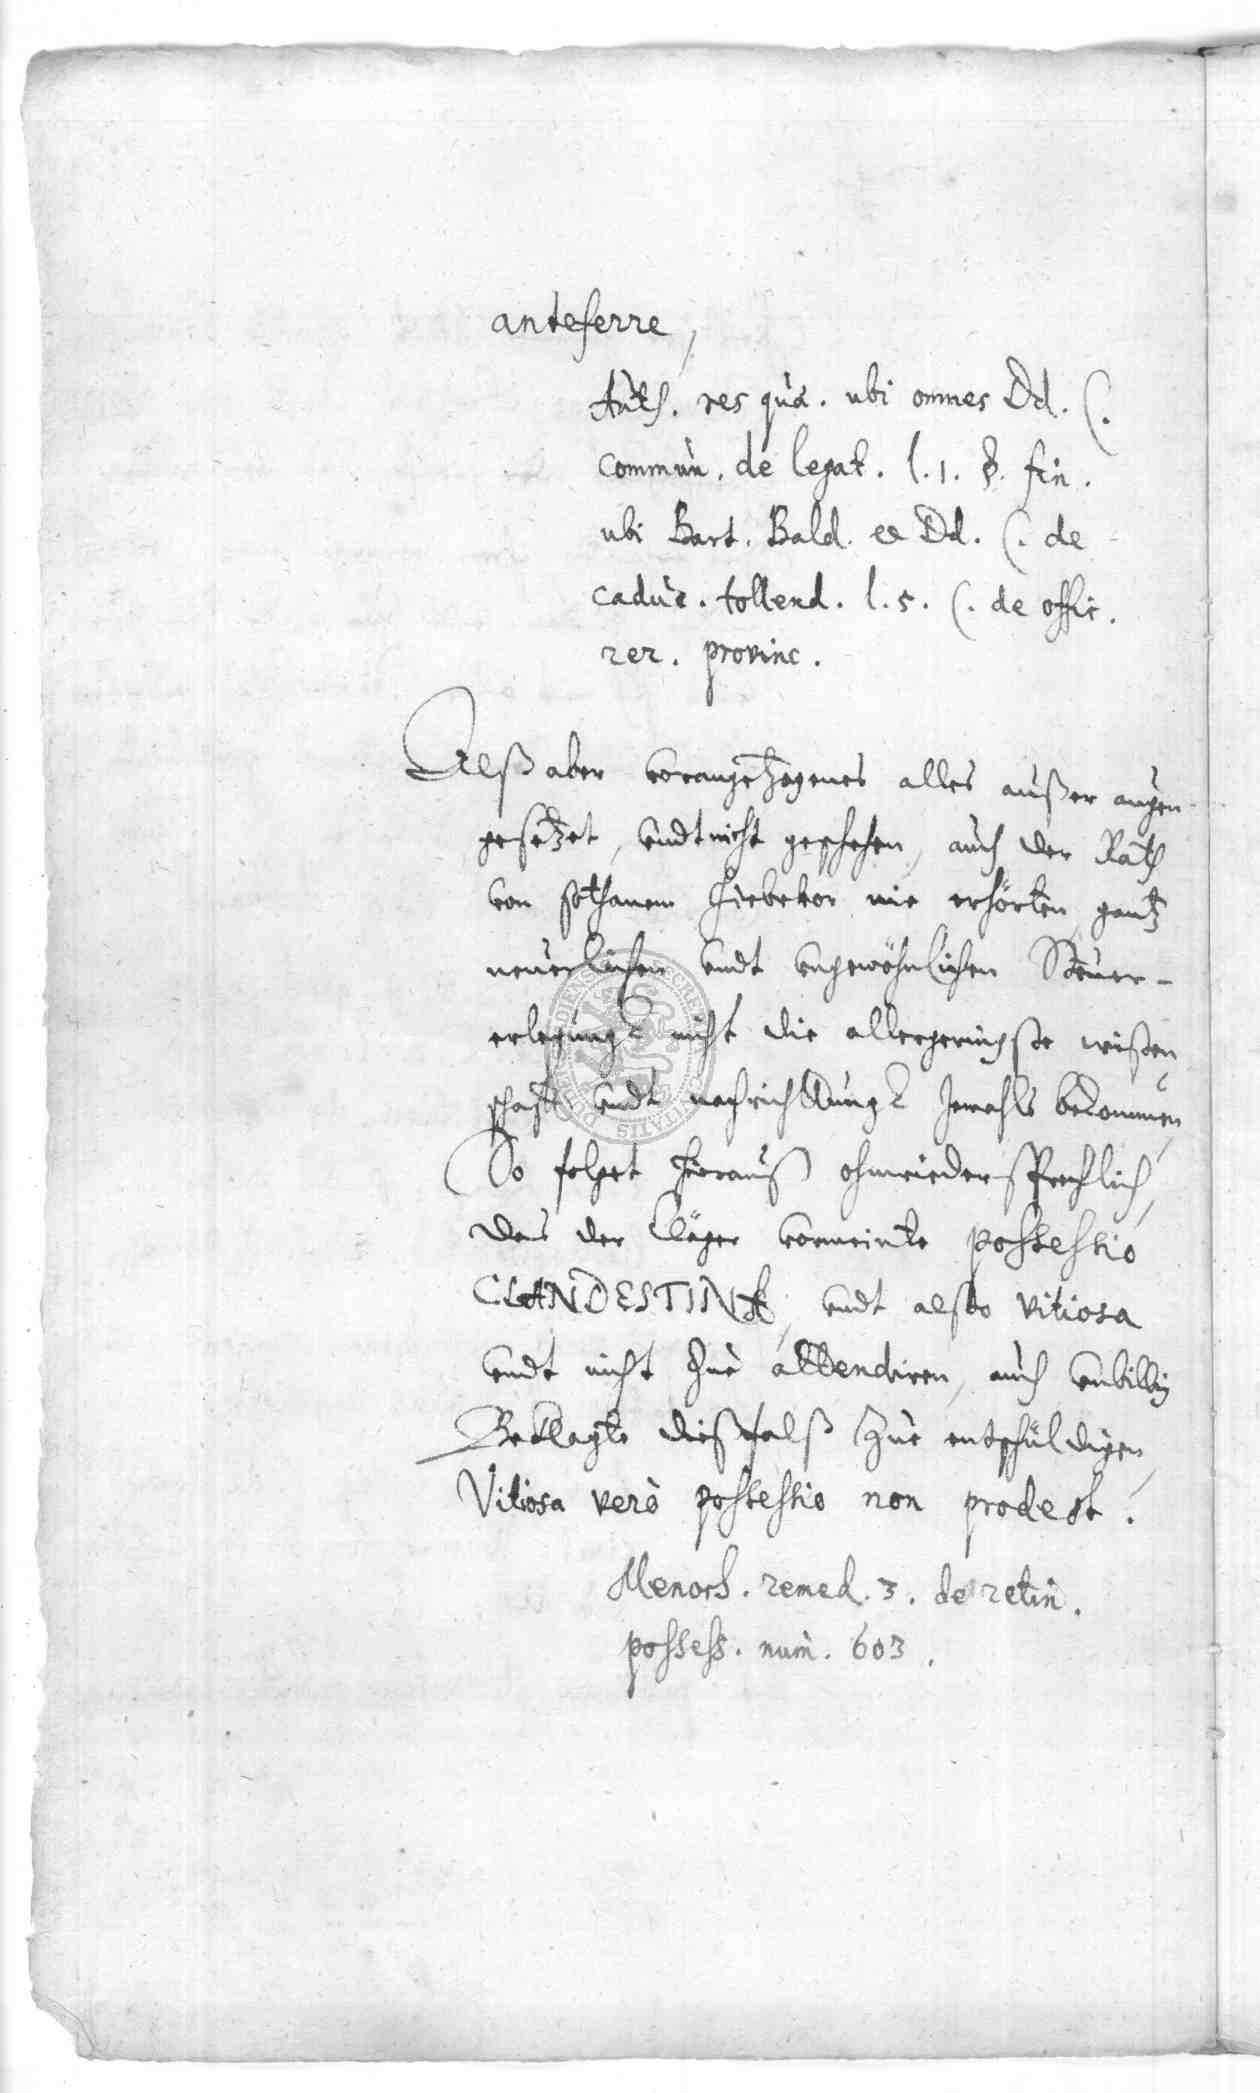 anteferre,
Auth. res quæ. ubi omnes Dd. C.
commun. de legat. l. 1. §. fin.
ubi Bart. Bald. et Dd. C. de
caduc. tollend. l. 5. C. de offic.
rer. provinc.
Alß aber vorangezogenes alles außer augen
gesetzet, undt nicht geschehen, auch der Rath
von sothanem hiebevor nie erhörten, gantz
neuerlichen undt ungewöhnlichen Steuer-
erlegung nicht die allergeringste wißen
schafft undt nachrichttung Jemahls bekommen,
So folget hierauß ohnwiedersprechlich,
das der Cläger vormeinte possessio
CLANDESTINA, undt alsso vitiosa
undt nicht zue attendiren, auch unbillig
Beklagte dießfalß zue entschüldigen,
Vitiosa verò possessio non prodest.
Menoch. remed. 3. de retin.
possess. num. 603.